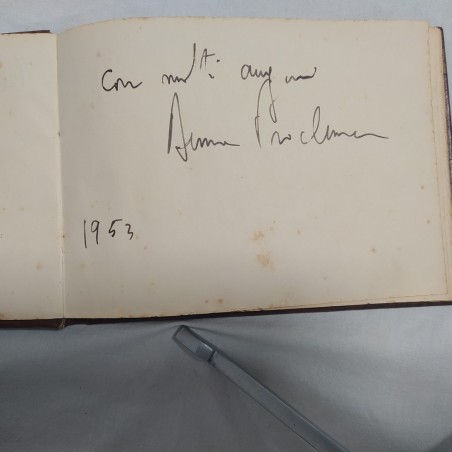 Con molti auguri
Anna Proclemer
1953